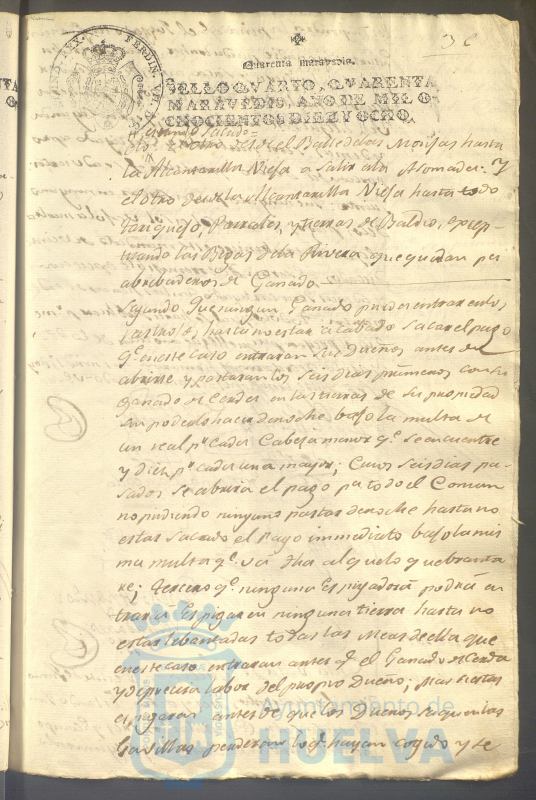 36
FERDIN. VII. D.
Quarenta maravedis.
SELLO QVARTO, QVARENTA
MARAVEDIS, AÑO DE MIL O-
CHOCIENTOS DIEZ Y OCHO.
el de las Monjas hasta
la Alcantarilla Vieja a salir ala Asomada: Y
el otro desde la Alcantarilla Vieja hasta todo
Parrales, y tierras de Baldio, excep-
tuando las Begas dela Rivera que quedan pa
abrebaderos de Ganado
segundo Que ningun Ganado pueda entrar en los
rastrojos, hasta no estar acabado sacar el pago
qe. en este caso entraran sus Dueños antes de
abrirse y pastaran los seis dias primeros con su
ganado de Cerda en las tierras de su propiedad
sin poderlo hacer de noche bajo la multa de
un real pr. cada Cabeza menor qe. se encuentre
y diez pr. cada una mayor; Cuios seis dias pa-
sados se abrira el pago pa. todo el Comun
no pudiendo ninguno pastar de noche hasta no
estar sacado el pago immediato bajo la mis
ma multa qe. va dha al que lo quebranta
re; Tercero qe. ninguna Espigadora podrá en
trar a Espigar en ninguna tierra hasta no
estar lebantadas todas las Mieses de ella que
en este caso entraran antes qe. el Ganado de Cerda
y del propio Dueño; Mas si estas
espigaran antes de que los Dueños saquen las
Gavillas perderan lo qe. hayan cogido y se
Ayuntamiento de
HUELVA